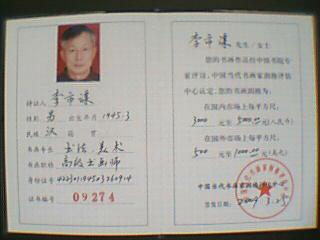 持证人 李市谋
性别 男 出生年月 1945.3
民族 汉 籍贯
书画专业 书法.美术
书画职称 高级书画师
身份证号
证书编号 09274
李市谋 先生/女士
您的书画作品经中炊书院专
家评议,中国当代书画家润格评估
中心认定,您的书画润格为:
在国内市场上每平方尺:
3000 元至 5000 元(人民币)
在国外市场上每平方尺:
500 元至 1000.00 元(美元)
中国当代书画家润格评估中心
签发日期: 2009 3.25